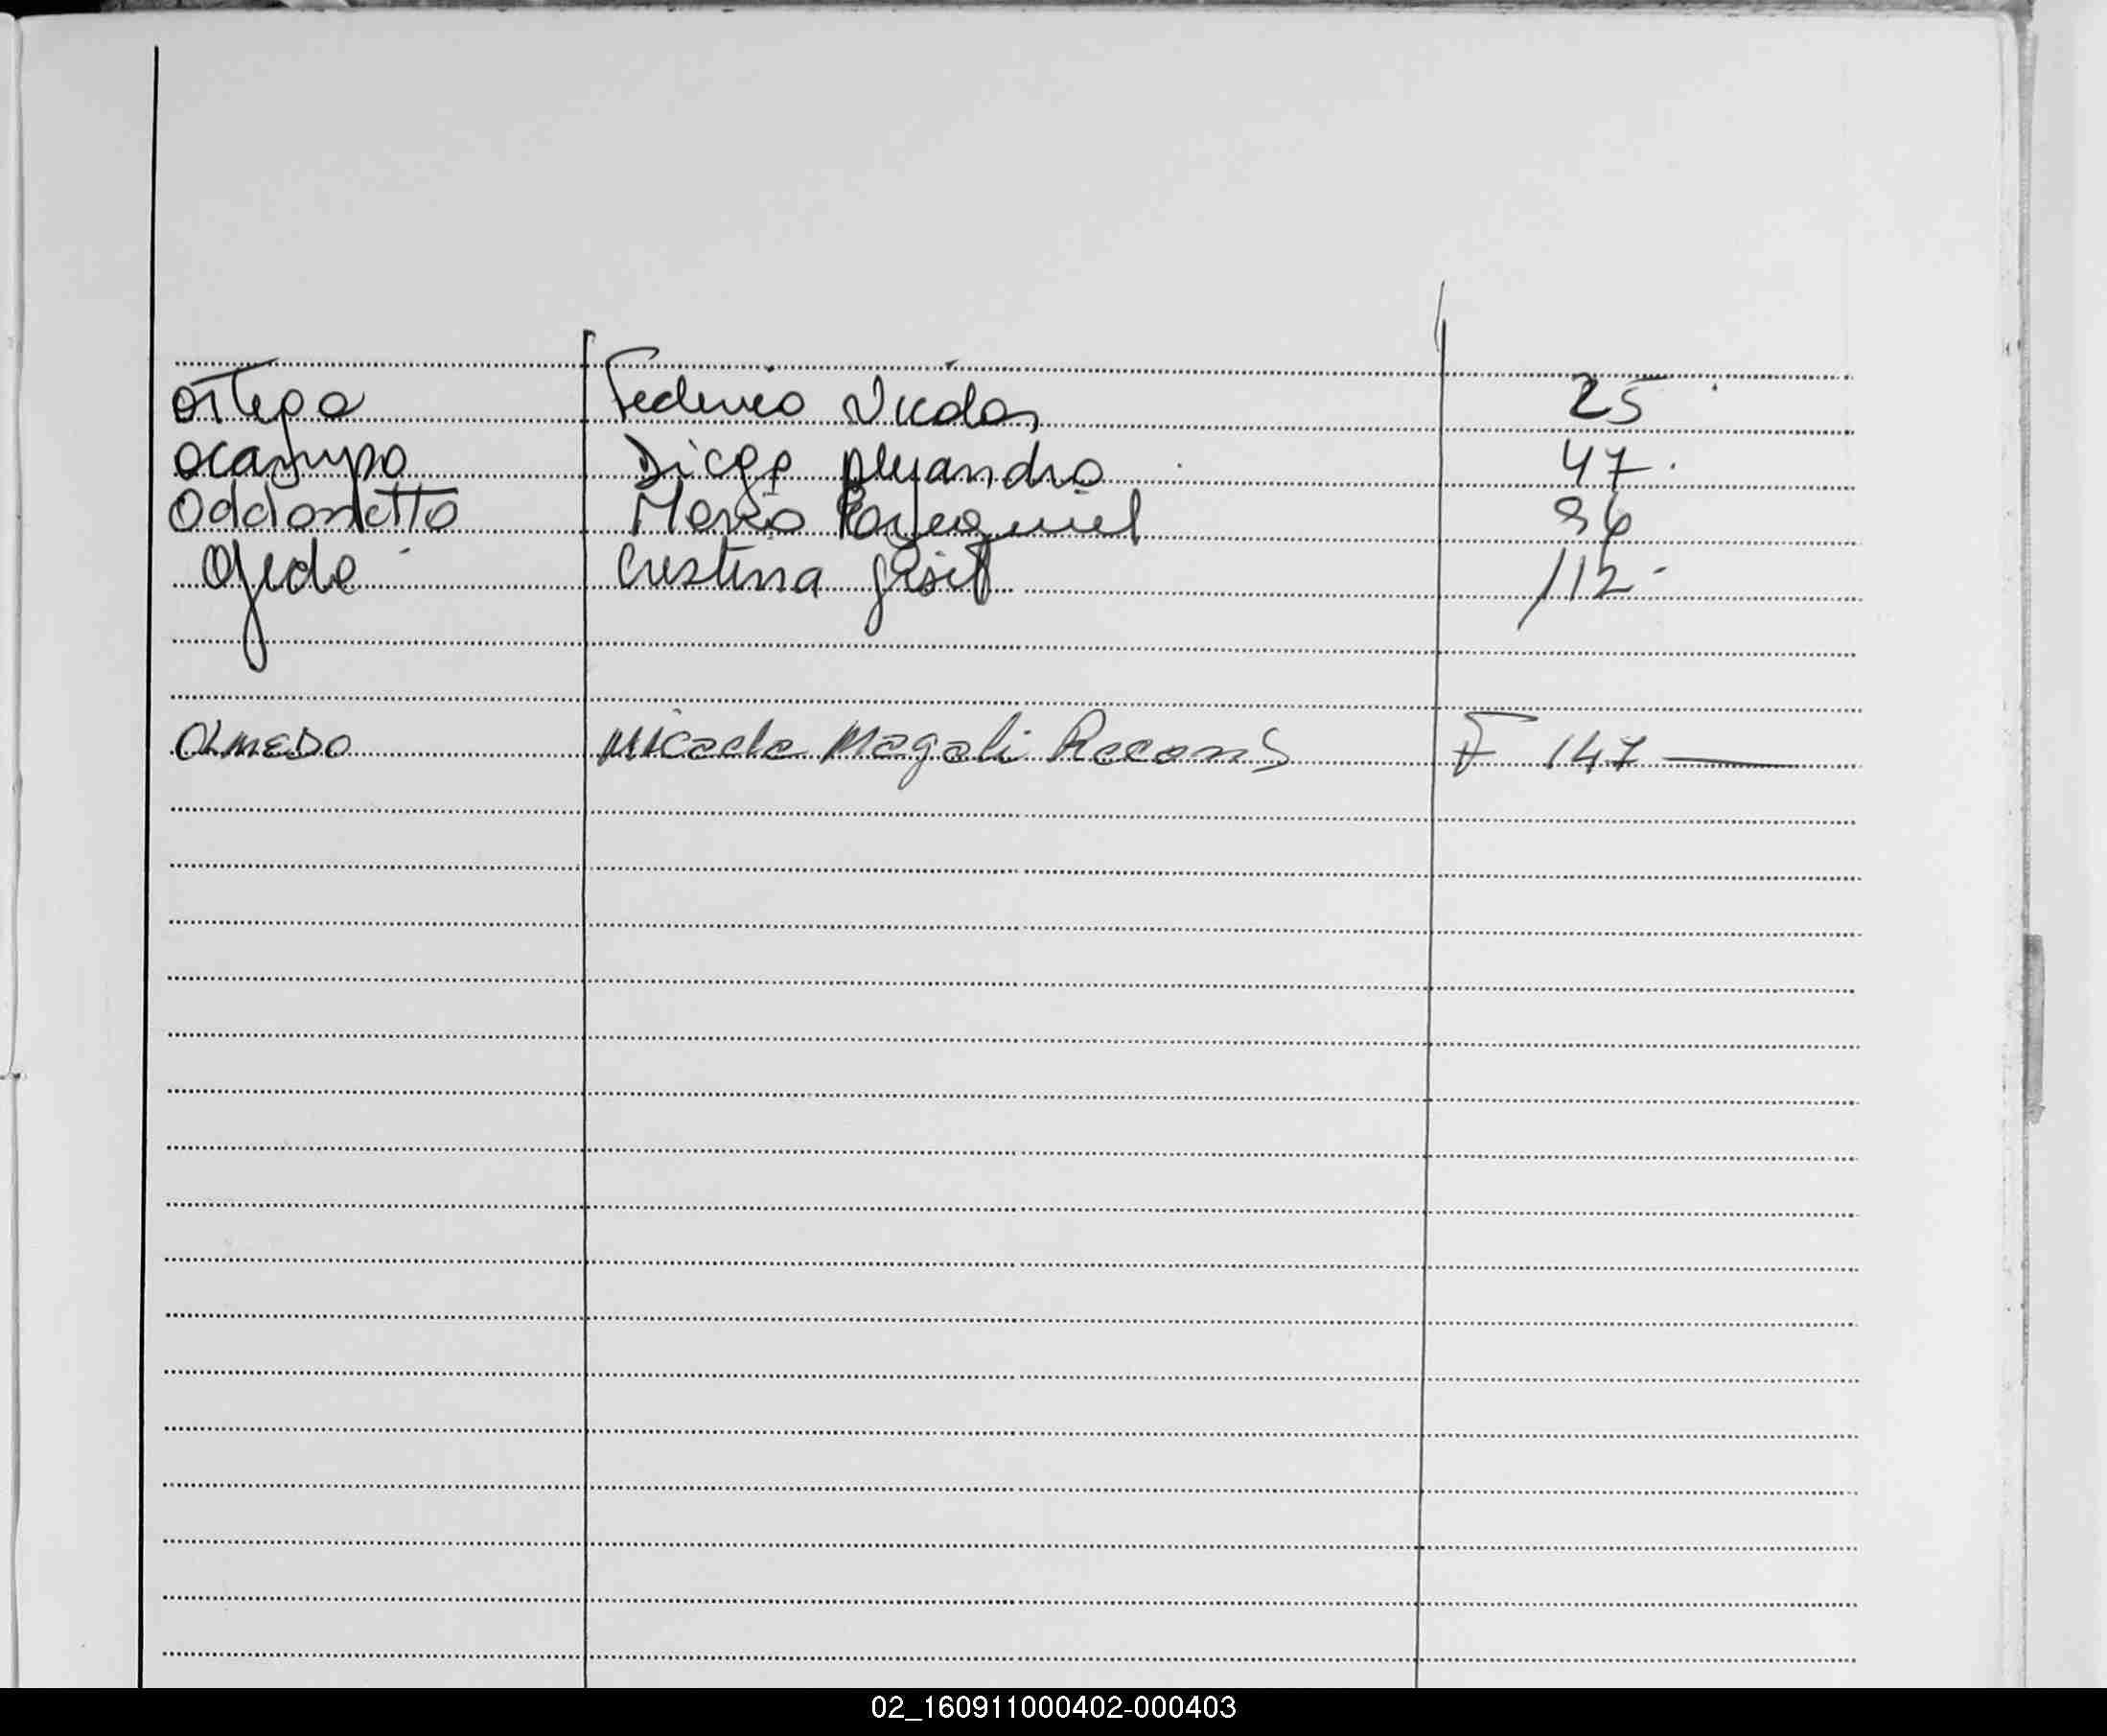 Ortega Federico Nicolas 25
Ocampo Diego Alejandro 47.
Oddonetto Mario 96
Ojeda Cristina Gisel 112-
OLMEDO Micaela Magali F 147
02_160911000402-000403